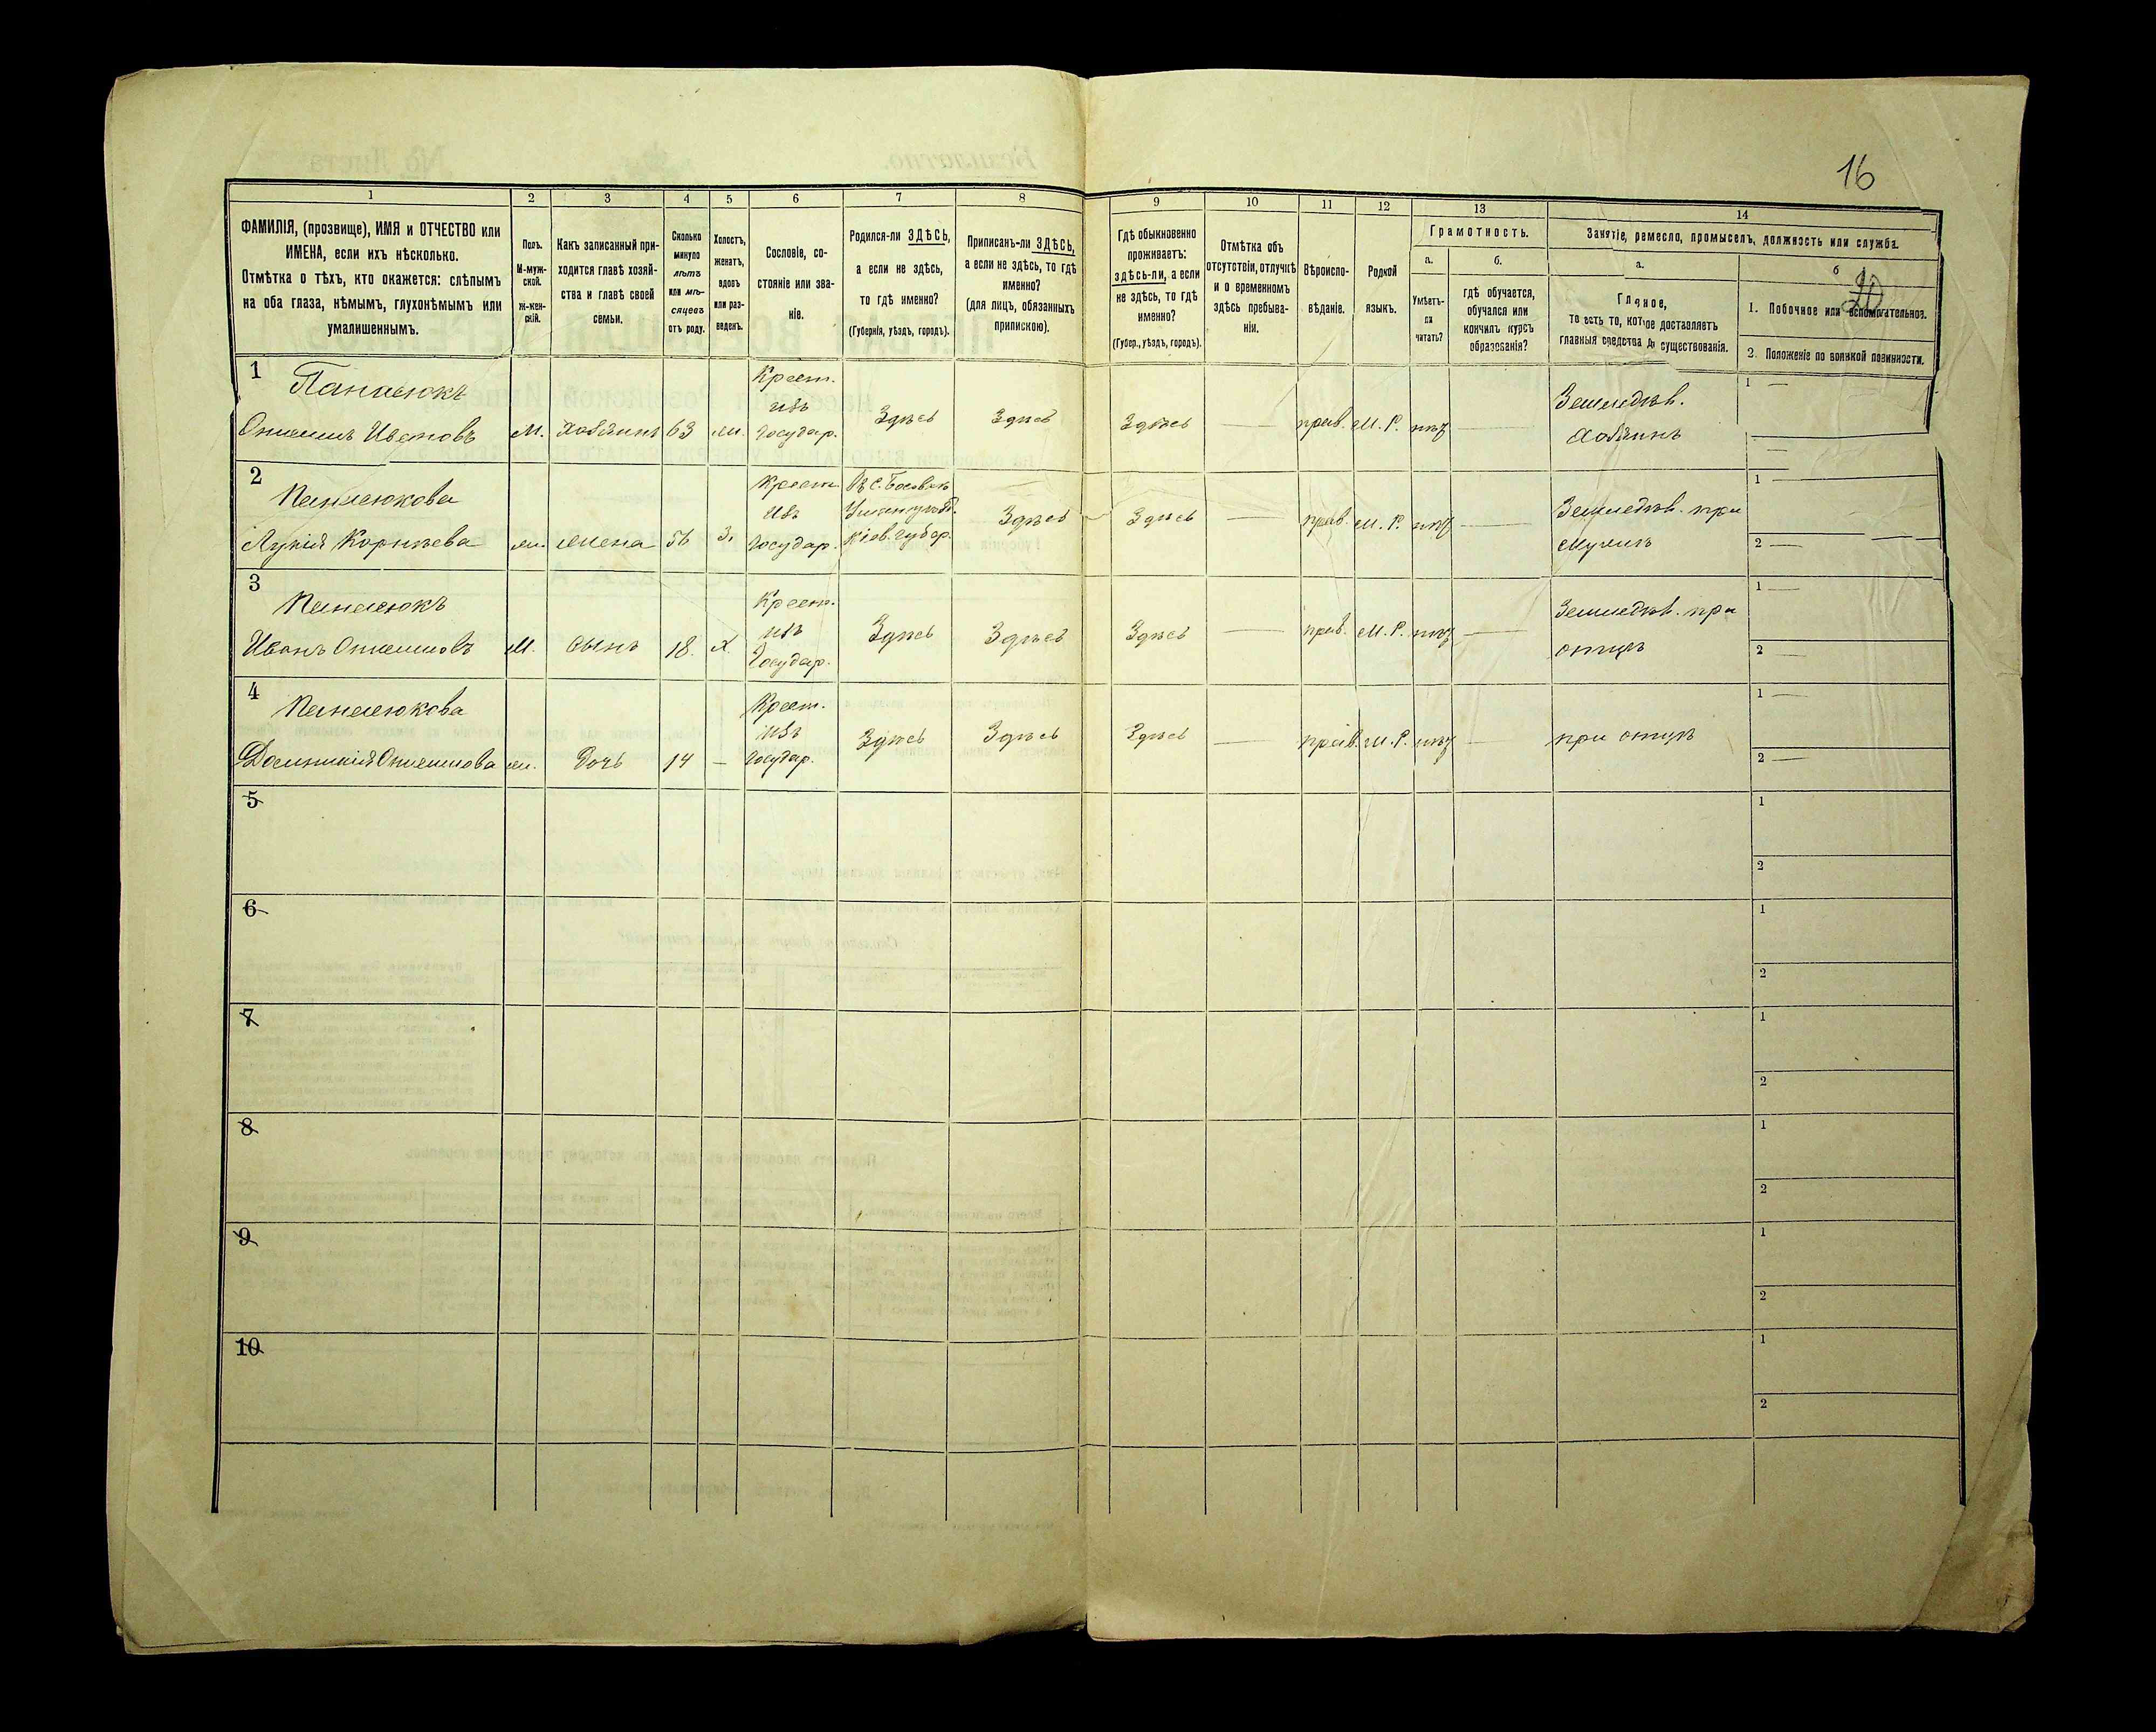 16
1
2
3
4
5
6
7
8
9
10
11
12
13
14
ФАМИЛІЯ, (прозвище), ИМЯ и ОТЧЕСТВО или
ИМЕНА, если ихъ нѣсколько.
Отмѣтка о тѣхъ, кто окажется: слѣпымъ
на оба глаза, нѣмымъ, глухонѣмымъ или
умалишеннымъ.
Полъ.
М-муж-
ской.
Ж-жен-
скій.
Какъ записанный при-
ходится главѣ хозяй-
ства и главѣ своей
семьи.
Сколько
минуло
лѣтъ
или мѣ-
сяцевъ
отъ роду.
Холостъ,
женатъ,
вдовъ
или раз-
веденъ.
Сословіе, со-
стояніе или зва-
ніе.
Родился-ли ЗДѢСЬ,
а если не здѣсь,
то гдѣ именно?
(Губернія, уѣздъ, городъ).
Приписанъ-ли ЗДѢСЬ,
а если не здѣсь, то гдѣ
именно?
(для лицъ, обязанныхъ
припискою).
Гдѣ обыкновенно
проживаетъ:
здѣсь-ли, а если
не здѣсь, то гдѣ
именно?
(Губер., уѣздъ, городъ).
Отмѣтка объ
отсутствіи, отлучкѣ
и о временномъ
здѣсь пребыва-
ніи.
Вѣроиспо-
вѣданіе.
Родной
языкъ.
Грамотность.
а.
Умѣетъ-
ли
читать?
б.
гдѣ обучается,
обучался или
кончилъ курсъ
образованія?
Занятіе, ремесло, промыселъ, должность или служба.
а.
Главное,
то есть то, которое доставляетъ
главныя средства для существованія.
б
20
1. Побочное или вспомогательное.
2. Положеніе по воинской повинности.
1
Панасюкъ
Онисимъ Ивановъ М. Хозяинъ 63 ж. Крест. изъ Государ. Здѣсь Здѣсь Здѣсь — прав. М. Р. нѣтъ — Земледѣл. Хозяинъ
1 —
—
2
Панасюкова
Лукія Корнѣева ж. жена 56 З. Крест. Изъ Государ. Въ с.
Кіев. Губер. Здѣсь Здѣсь — прав. М. Р. нѣтъ — Земледѣл. при мужѣ
1 —
2 —
3
Панасюкъ
Иванъ Онисимовъ М. Сынъ 18. х. Крест. изъ Государ. Здѣсь Здѣсь Здѣсь — прав. М. Р. нѣтъ — Земледѣл. при отцѣ
1 —
2 —
4
Панасюкова
Домникія Онисимова ж. Дочь 14 — Крест. Изъ Государ. Здѣсь Здѣсь Здѣсь — прав. М. Р. нѣтъ — при отцѣ
1 —
2 —
5
1
2
6
1
2
7
1
2
8
1
2
9
1
2
10
1
2